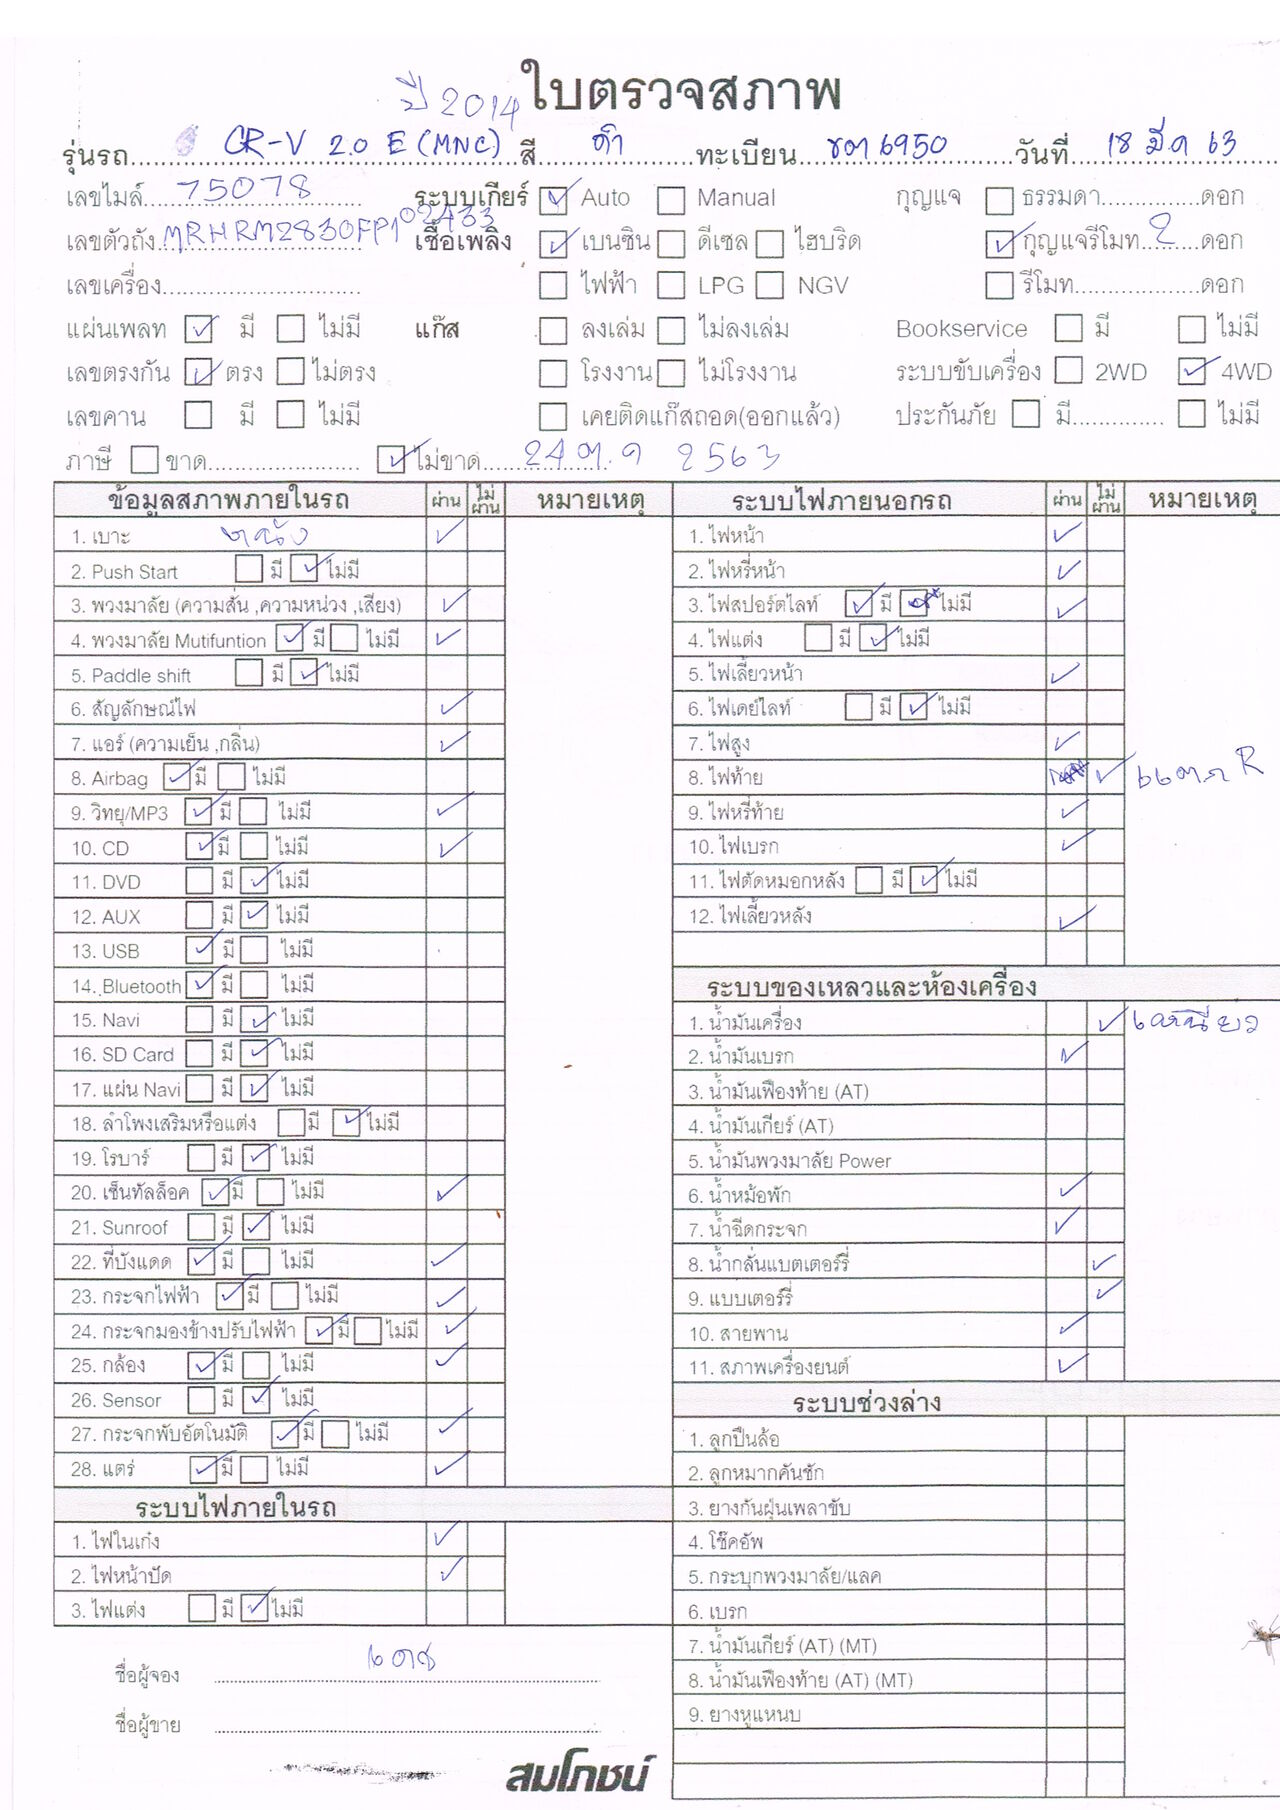 ใบตรวจสภาพ
ปี 2014
รุ่นรถ CR-V 2.0 E (MNC) สี ดำ ทะเบียน ขต 6950 วันที่ 18 มีค 63
เลขไมล์ 75078 ระบบเกียร์ Auto Manual กุญแจ ธรรมดา ดอก
เลขตัวถัง MRHRM2830FP102433 เชื้อเพลิง เบนซิน ดีเซล ไฮบริด กุญแจรีโมท 2 ดอก
เลขเครื่อง ไฟฟ้า LPG NGV รีโมท ดอก
แผ่นเพลท มี ไม่มี แก๊ส ลงเล่ม ไม่ลงเล่ม Bookservice มี ไม่มี
เลขตรงกัน ตรง ไม่ตรง โรงงาน ไม่โรงงาน ระบบขับเครื่อง 2WD 4WD
เลขคาน มี ไม่มี เคยติดแก๊สถอด(ออกแล้ว) ประกันภัย มี ไม่มี
ภาษี ขาด ไม่ขาด 24 ต.ค 2563
ข้อมูลสภาพภายในรถ ผ่าน ไม่ผ่าน หมายเหตุ
1. เบาะ หนัง
2. Push Start มี ไม่มี
3. พวงมาลัย (ความสั่น ,ความหน่วง ,เสียง)
4. พวงมาลัย Mutifuntion มี ไม่มี
5. Paddle shift มี ไม่มี
6. สัญลักษณ์ไฟ
7. แอร์ (ความเย็น ,กลิ่น)
8. Airbag มี ไม่มี
9. วิทยุ/MP3 มี ไม่มี
10. CD มี ไม่มี
11. DVD มี ไม่มี
12. AUX มี ไม่มี
13. USB มี ไม่มี
14. Bluetooth มี ไม่มี
15. Navi มี ไม่มี
16. SD Card มี ไม่มี
17. แผ่น Navi มี ไม่มี
18. ลำโพงเสริมหรือแต่ง มี ไม่มี
19. โรบาร์ มี ไม่มี
20. เซ็นทัลล็อค มี ไม่มี
21. Sunroof มี ไม่มี
22. ที่บังแดด มี ไม่มี
23. กระจกไฟฟ้า มี ไม่มี
24. กระจกมองข้างปรับไฟฟ้า มี ไม่มี
25. กล้อง มี ไม่มี
26. Sensor มี ไม่มี
27. กระจกพับอัตโนมัติ มี ไม่มี
28. แตร่ มี ไม่มี
ระบบไฟภายในรถ
1. ไฟในเก๋ง
2. ไฟหน้าปัด
3. ไฟแต่ง มี ไม่มี
ชื่อผู้จอง เดช
ชื่อผู้ขาย
ระบบไฟภายนอกรถ ผ่าน ไม่ผ่าน หมายเหตุ
1. ไฟหน้า
2. ไฟหรี่หน้า
3. ไฟสปอร์ตไลท์ มี ไม่มี
4. ไฟแต่ง มี ไม่มี
5. ไฟเลี้ยวหน้า
6. ไฟเดย์ไลท์ มี ไม่มี
7. ไฟสูง
8. ไฟท้าย แตก R
9. ไฟหรี่ท้าย
10. ไฟเบรก
11. ไฟตัดหมอกหลัง มี ไม่มี
12. ไฟเลี้ยวหลัง
ระบบของเหลวและห้องเครื่อง
1. น้ำมันเครื่อง เหนียว
2. น้ำมันเบรก
3. น้ำมันเฟืองท้าย (AT)
4. น้ำมันเกียร์ (AT)
5. น้ำมันพวงมาลัย Power
6. น้ำหม้อพัก
7. น้ำฉีดกระจก
8. น้ำกลั่นแบตเตอร์รี่
9. แบบเตอร์รี่
10. สายพาน
11. สภาพเครื่องยนต์
ระบบช่วงล่าง
1. ลูกปืนล้อ
2. ลูกหมากคันชัก
3. ยางกันฝุ่นเพลาขับ
4. โช๊คอัพ
5. กระบุกพวงมาลัย/แลค
6. เบรก
7. น้ำมันเกียร์ (AT) (MT)
8. น้ำมันเฟืองท้าย (AT) (MT)
9. ยางหูแหนบ
สมโภชน์